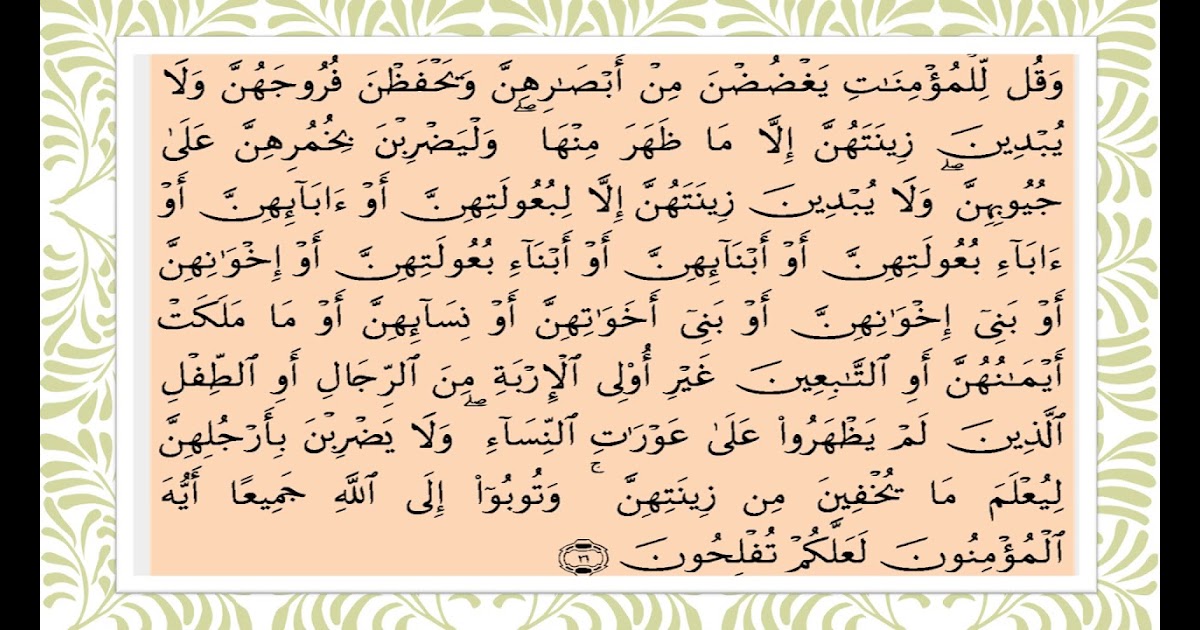 وَقُل لِّلْمُؤْمِنَـٰتِ يَغْضُضْنَ مِنْ أَبْصَـٰرِهِنَّ وَيَحْفَظْنَ فُرُوجَهُنَّ وَلَا
يُبْدِينَ زِينَتَهُنَّ إِلَّا مَا ظَهَرَ مِنْهَا ۖ وَلْيَضْرِبْنَ بِخُمُرِهِنَّ عَلَىٰ
جُيُوبِهِنَّ ۖ وَلَا يُبْدِينَ زِينَتَهُنَّ إِلَّا لِبُعُولَتِهِنَّ أَوْ ءَابَآئِهِنَّ أَوْ
ءَابَآءِ بُعُولَتِهِنَّ أَوْ أَبْنَآئِهِنَّ أَوْ أَبْنَآءِ بُعُولَتِهِنَّ أَوْ إِخْوَٰنِهِنَّ
أَوْ بَنِىٓ إِخْوَٰنِهِنَّ أَوْ بَنِىٓ أَخَوَٰتِهِنَّ أَوْ نِسَآئِهِنَّ أَوْ مَا مَلَكَتْ
أَيْمَـٰنُهُنَّ أَوِ ٱلتَّـٰبِعِينَ غَيْرِ أُو۟لِى ٱلْإِرْبَةِ مِنَ ٱلرِّجَالِ أَوِ ٱلطِّفْلِ
ٱلَّذِينَ لَمْ يَظْهَرُوا۟ عَلَىٰ عَوْرَٰتِ ٱلنِّسَآءِ ۖ وَلَا يَضْرِبْنَ بِأَرْجُلِهِنَّ
لِيُعْلَمَ مَا يُخْفِينَ مِن زِينَتِهِنَّ ۚ وَتُوبُوٓا۟ إِلَى ٱللَّهِ جَمِيعًا أَيُّهَ
ٱلْمُؤْمِنُونَ لَعَلَّكُمْ تُفْلِحُونَ